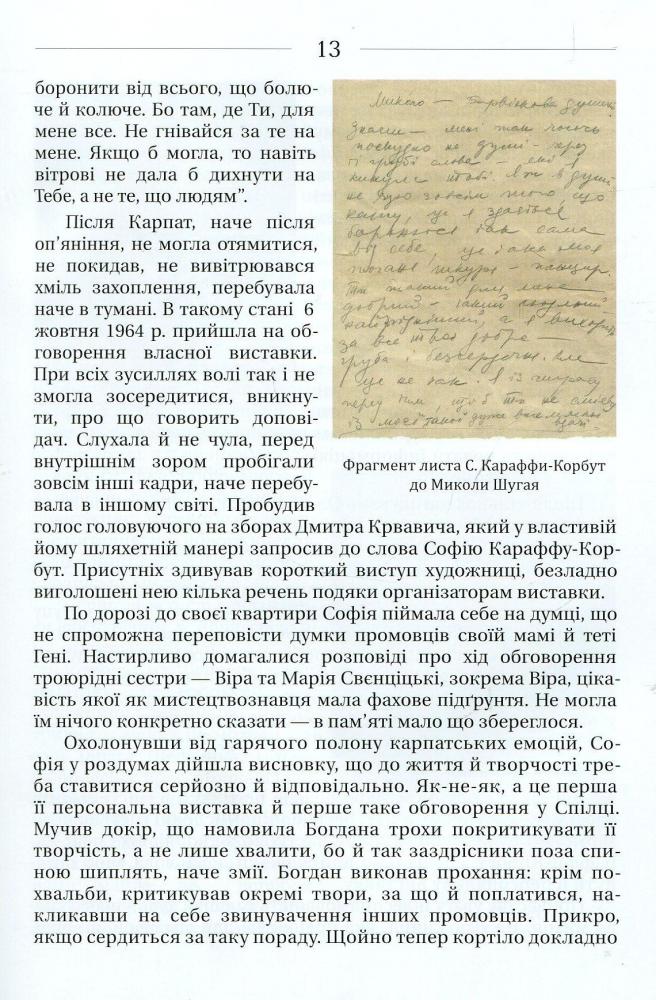 13
боронити від всього, що болю-
че й колюче. Бо там, де Ти, для
мене все. Не гнівайся за те на
мене. Якщо б могла, то навіть
вітрові не дала б дихнути на
Тебе, а не те, що людям”.
Після Карпат, наче після
оп’яніння, не могла отямитися,
не покидав, не вивітрювався
хміль захоплення, перебувала
наче в тумані. В такому стані 6
жовтня 1964 р. прийшла на об-
говорення власної виставки.
При всіх зусиллях волі так і не
змогла зосередитися, вникну-
ти, про що говорить допові-
дач. Слухала й не чула, перед
внутрішнім зором пробігали
зовсім інші кадри, наче перебу-
вала в іншому світі. Пробудив
Микого —
Знаєш — мені так чогось
на душі - через
ті грубі слова —
кинула тобі. Я ж в душі
не чую зовсім того, що
кажу, це я здається
бороною так сама
від себе, це така моя
погана шкура - панцир.
Ти такий для мене
добрий -
за все твоє добро —
груба і безсердечна. Але
це не так. Я із
через тим, щоб
із моєї такої дуже
Фрагмент листа С. Караффи-Корбут
до Миколи Шугая
голос головуючого на зборах Дмитра Крвавича, який у властивій
йому шляхетній манері запросив до слова Софію Караффу-Кор-
бут. Присутніх здивував короткий виступ художниці, безладно
виголошені нею кілька речень подяки організаторам виставки.
По дорозі до своєї квартири Софія піймала себе на думці, що
не спроможна переповісти думки промовців своїй мамі й теті
Гені. Настирливо домагалися розповіді про хід обговорення
троюрідні сестри — Віра та Марія Свєнціцькі, зокрема Віра, ціка-
вість якої як мистецтвознавця мала фахове підґрунтя. Не могла
їм нічого конкретно сказати — в пам’яті мало що збереглося.
Охолонувши від гарячого полону карпатських емоцій, Со-
фія у роздумах дійшла висновку, що до життя й творчості тре-
ба ставитися серйозно й відповідально. Як-не-як, а це перша
її персональна виставка й перше таке обговорення у Спілці.
Мучив докір, що намовила Богдана трохи покритикувати її
творчість, а не лише хвалити, бо й так заздрісники поза спи-
ною шиплять, наче змії. Богдан виконав прохання: крім по-
хвальби, критикував окремі твори, за що й поплатився, на-
кликавши на себе звинувачення інших промовців. Прикро,
якщо сердиться за таку пораду. Щойно тепер кортіло докладно